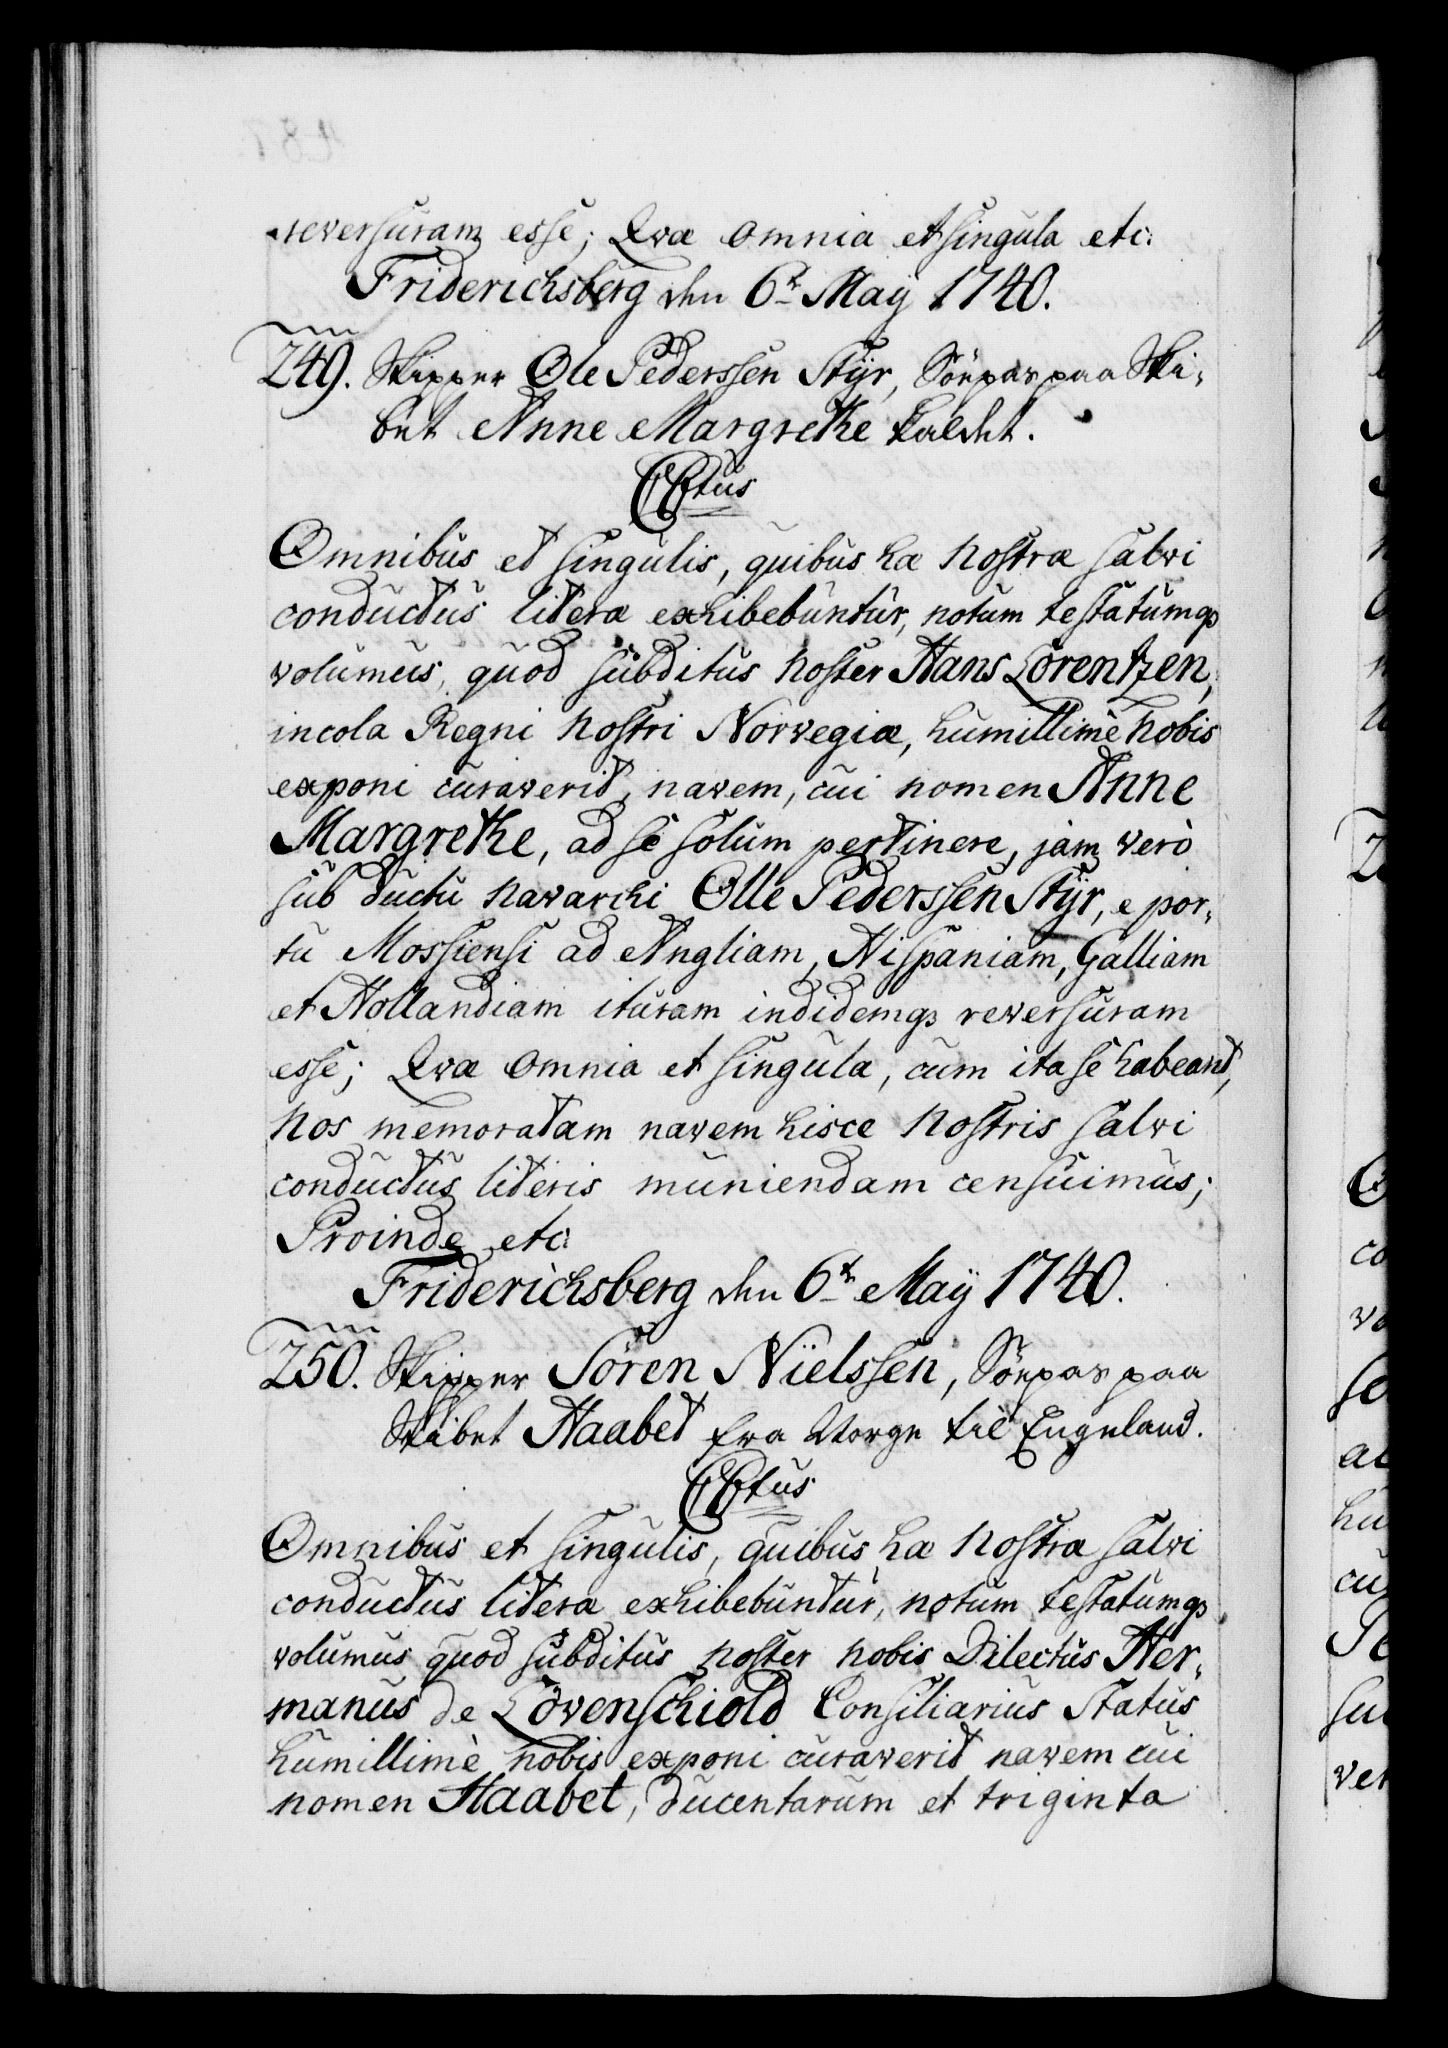 reversuram esse; Qvæ omnia et singula etc:
Friderichsberg den 6t May 1740.
249. Skipper Ole Pederssen Stÿr, Söepas paa Ski-
bet Anne Margrethe kaldet.
Omnibus et singulis, quibus hæ Nostræ salvi
conductus literæ exhibebuntur, notum testatumqz
volumus, quod subditus Noster Hans Lorentzen,
incola Regni Nostri Norvegiæ, humillimè Nobis
exponi curaverit, navem, cui nomen Anne
Margrethe, ad se solum pertinere, jam verò
sub ductu navarchi Olle Pederssen Stÿr, e por-
tu Mossiensi ad Angliam, Hispaniam, Galliam
et Hollandiam ituram indidemqz reversuram
esse; Qvæ omnia et singula, cum ita se habeant,
Nos memoratam navem hisce Nostris salvi
conductus literis muniendam censuimus;
Proinde etc:
Friderichsberg den 6t Maÿ 1740.
250. Skipper Sören Nielssen, Söepas paa
Skibet Haabet fra Norge til Engeland.
Omnibus et singulis, quibus hæ Nostræ salvi
conductus literæ exhibebuntur, notum testatumqz
volumus quod subditus noster nobis Dilectus Her-
manus de Lövenschiold Consiliarius Status
humillimè nobis exponi curaverit navem cui
nomen Haabet, ducentarum et triginta